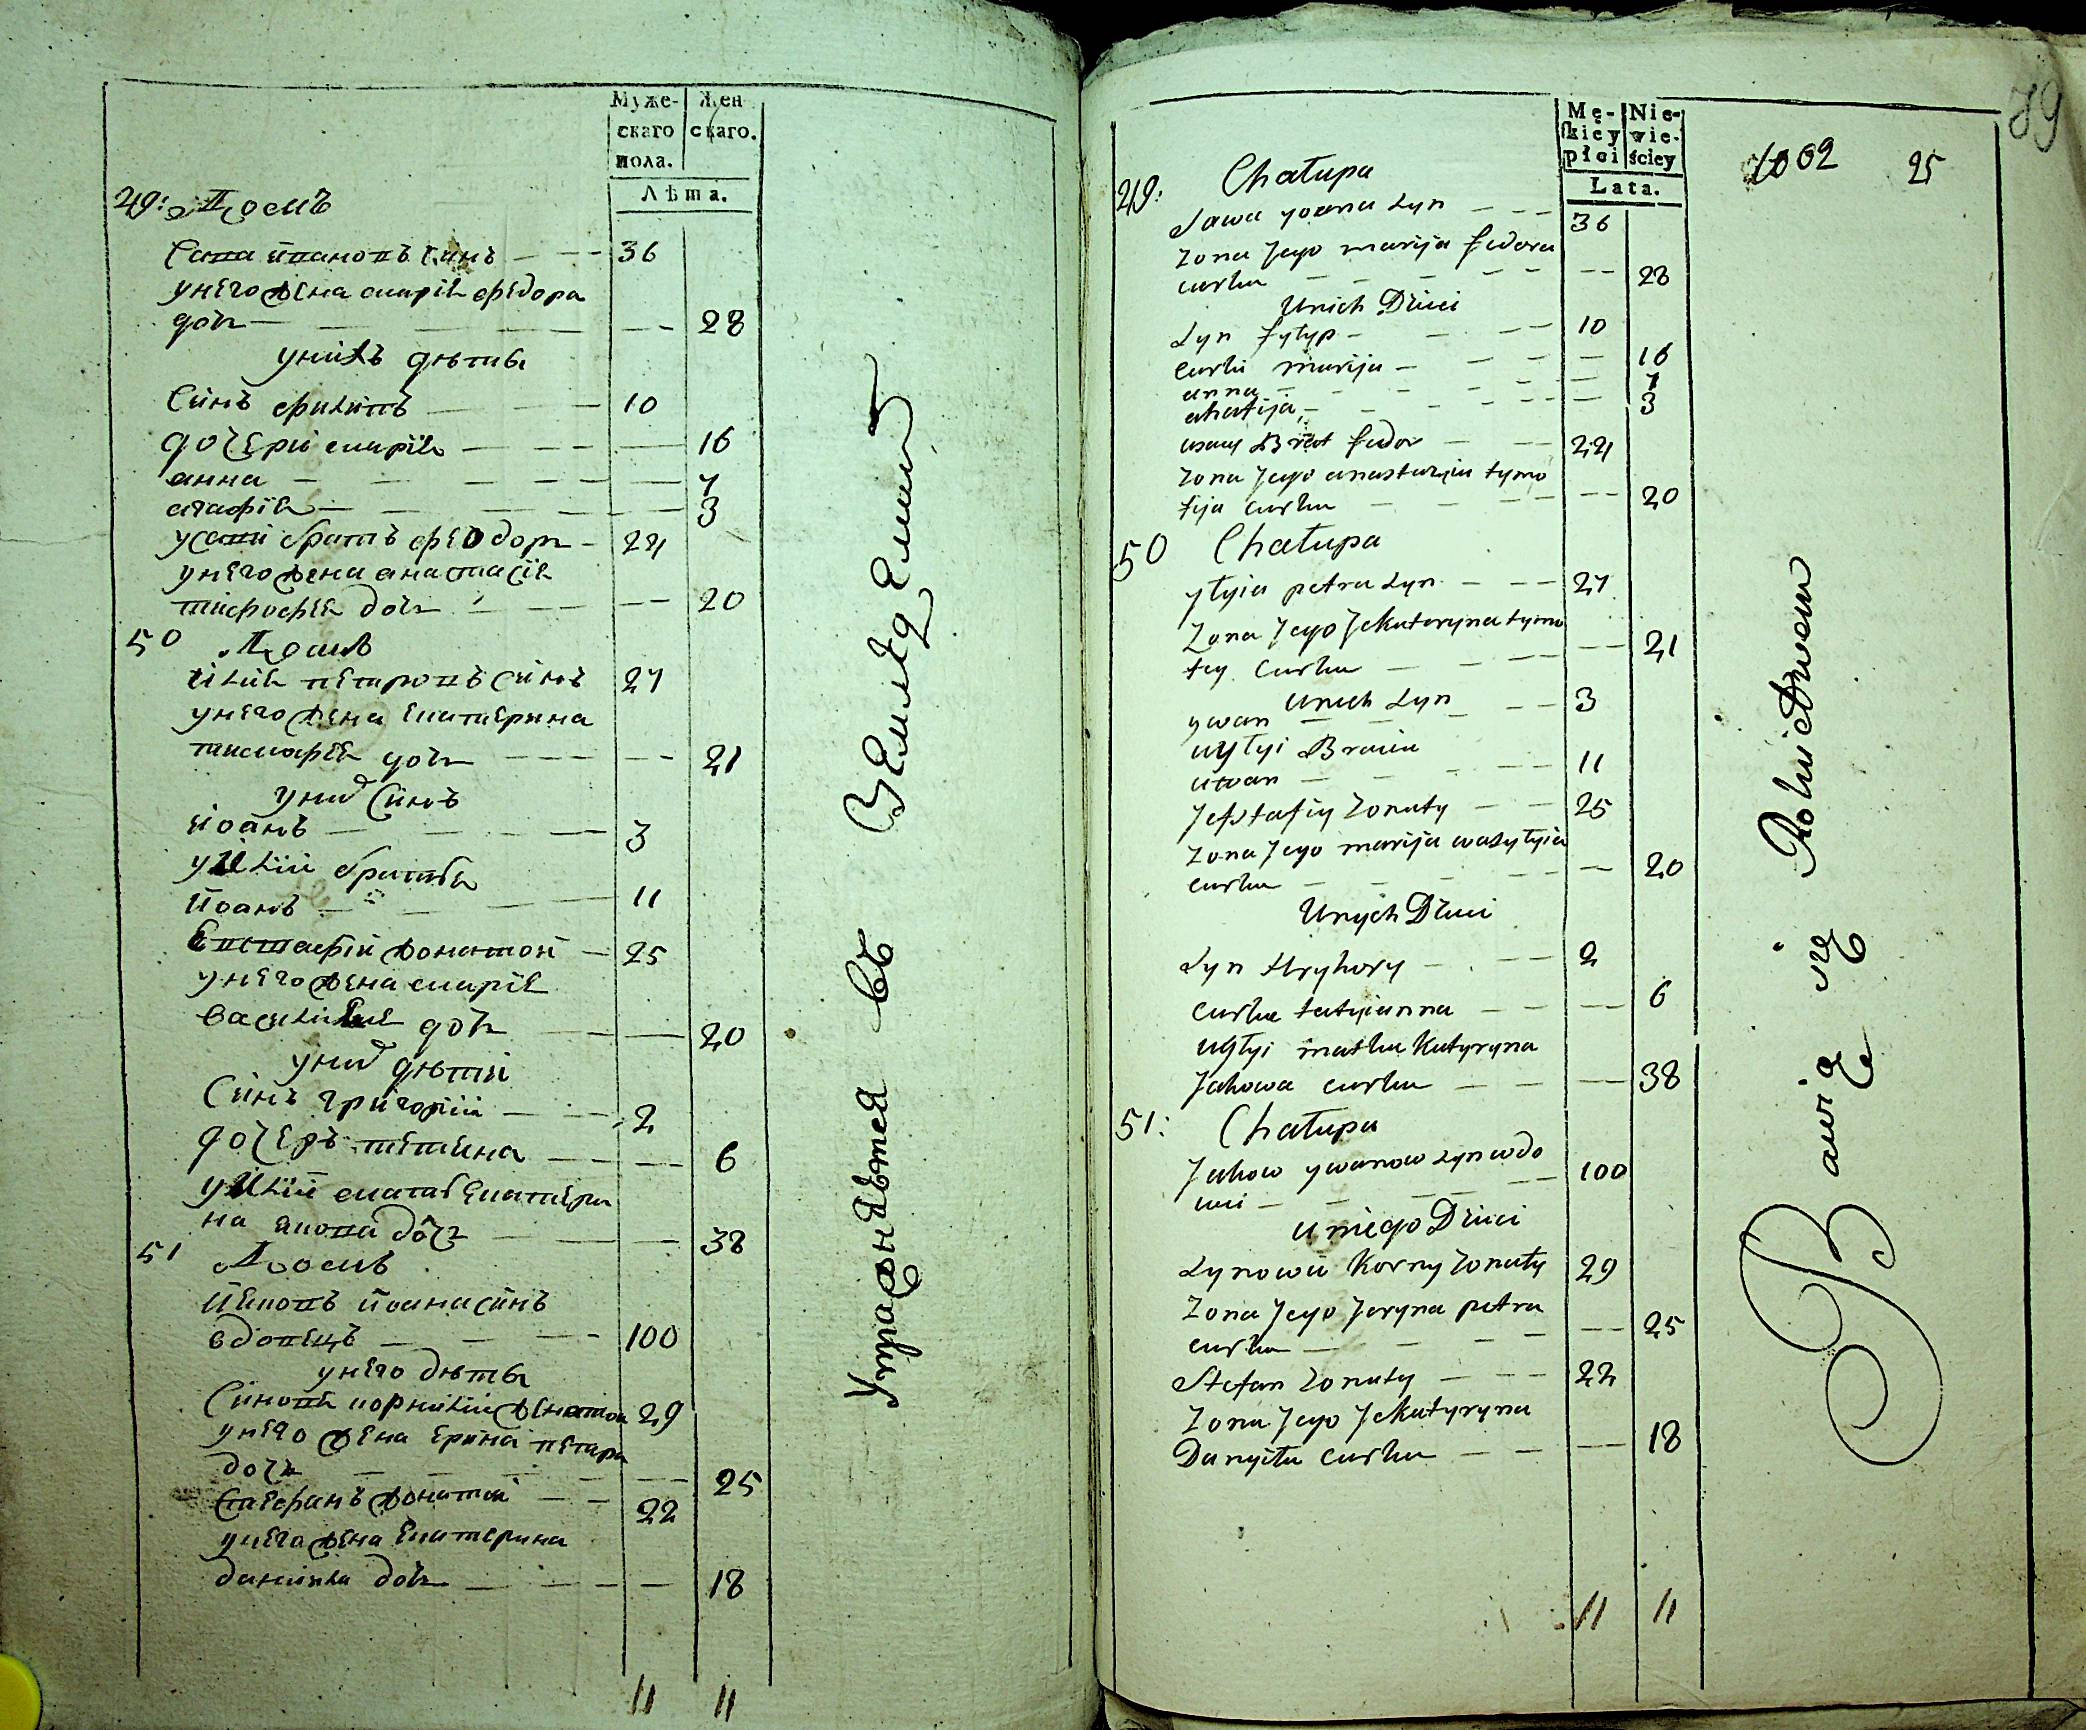 Муже-
скаго
пола.
Жен
скаго.
Лѣта.
49: Домъ
Сава ивановъ синъ 36
унего жена марія федора
дочь 28
унихъ дѣти
Синъ филипъ 10
дочери марія 16
анна 7
агафія 3
усави братъ феодоръ 24
унего жена анастасія
тимофея дочь 20
50 Домъ
илия петровъ синъ 27
унего жена екатерина
тимофея дочь 21
уних синъ
иоанъ 3
уилии братья
иоанъ 11
Евстафій женатой 25
унего жена марія
василия дочь 20
уних дѣти
Синъ григорий 2
дочеръ тетяна 6
уилии мать екатери
на якова дочь 38
51 Домъ
Яковъ иоана синъ
вдовецъ 100
унего дѣти
Синовя корнилий женатой 29
унего жена ерина петра
дочь 25
Стефанъ женатой 22
унего жена екатерина
данила дочь 18
11 11
Упражняется въ Земледелии
79
Mę-
skiey
płci
Nie-
wie-
ściey
Lata.
1002 25
49: Chałupa
Sawa yoana syn 36
zona Jego marija fedora
curka 28
Unich Dzieci
syn fyłyp 10
curki marija 16
anna 7
ahafija 3
usawy Brat fedor 24
zona Jego anastazija tymo
fija curka 20
50 Chałupa
yłyia petra syn 27
zona Jego Jekateryna tymo
fey curka 21
Unich syn
ywan 3
uyłyi Bracia
iwan 11
Jefstafiy zonaty 25
zona Jego marija wasyłyia
curka 20
Unych Dzieci
syn Hryhory 2
curka tatyianna 6
uyłyi matka Katyryna
Jakowa curka 38
51: Chałupa
Jakow ywanow syn wdo
wiec 100
uniego Dzieci
synowie Korny zonaty 29
zona Jego Jeryna petra
curka 25
Stefan zonaty 22
zona Jego Jekatyryna
Danyiła curka 18
11 11
Bawią się Rolnictwem